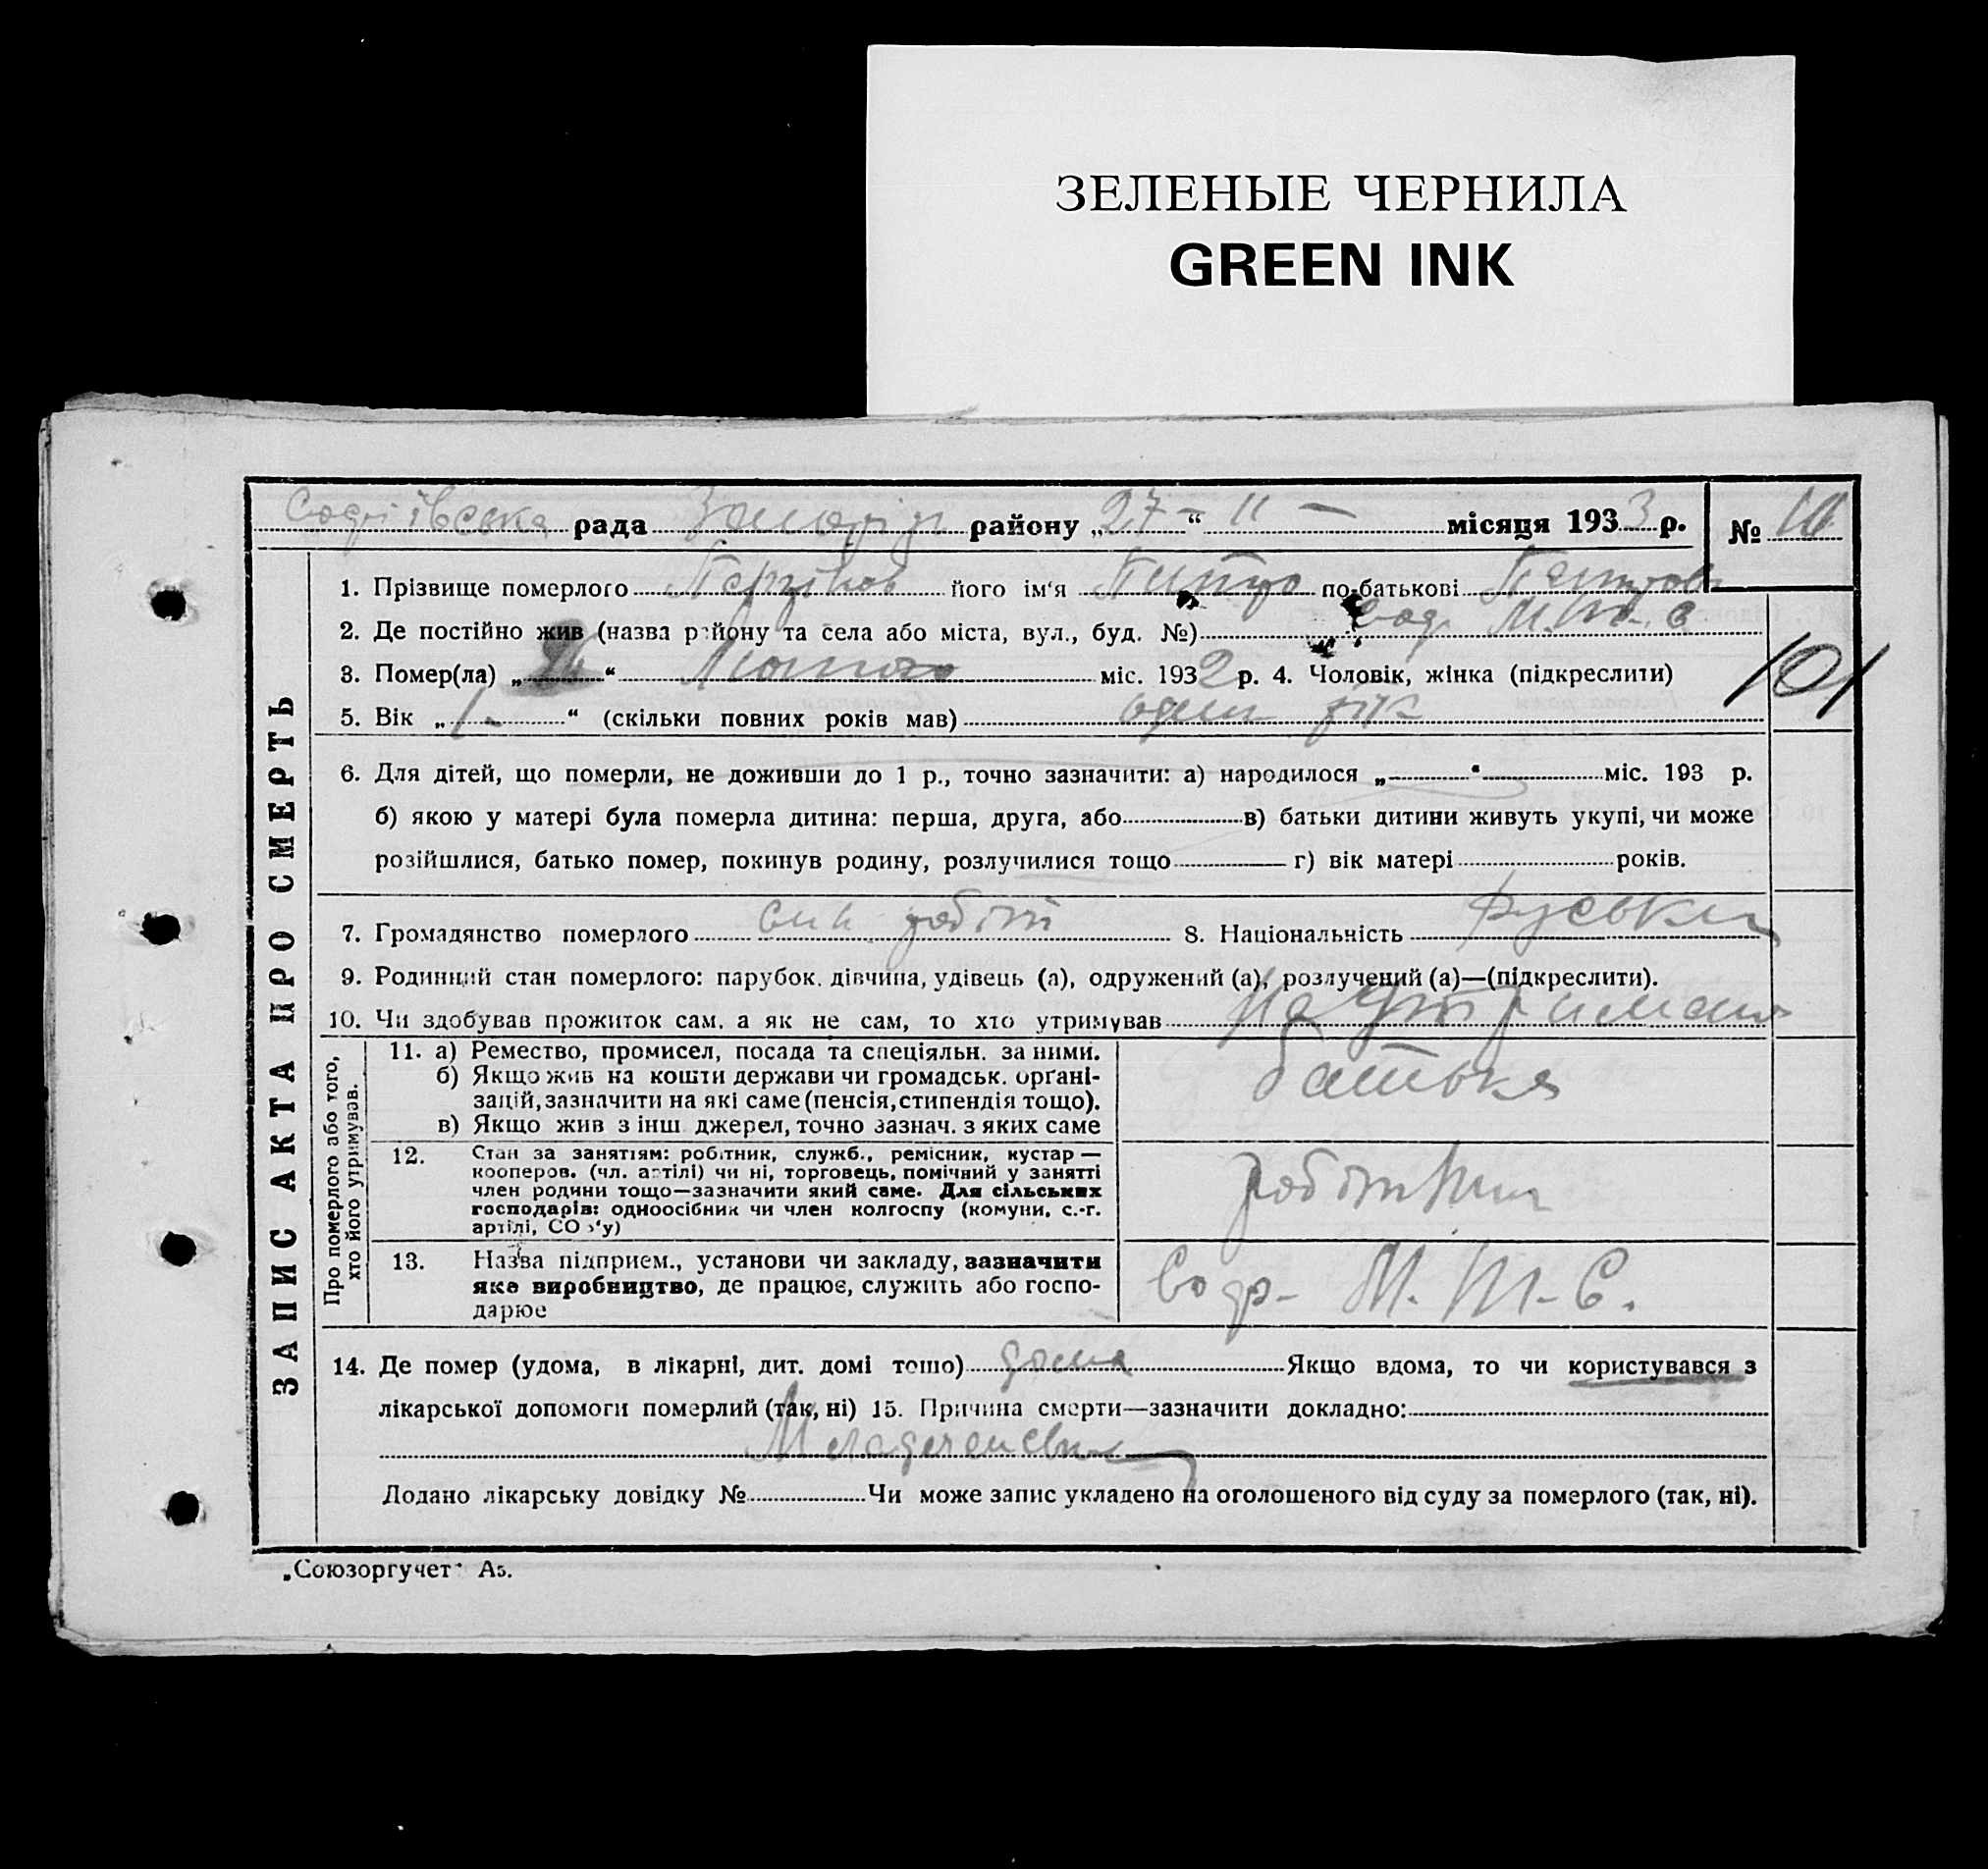 ЗЕЛЕНЫЕ ЧЕРНИЛА
GREEN INK
рада району „27 - “ II - місяця 1933 р. №
1. Прізвище померлого його ім'я по батькові
2. Де постійно жив (назва району та села або міста, вул., буд. №) М.Т.С
3. Помер(ла) „ “ Лютого міс. 1932 р. 4. Чоловік, жінка (підкреслити)
101
5. Вік „ 1 - “ (скільки повних років мав) один рік
6. Для дітей, що померли, не доживши до 1 р., точно зазначити: а) народилося „ “ міс. 193 р.
б) якою у матері була померла дитина: перша, друга, або в) батьки дитини живуть укупі, чи може
розійшлися, батько помер, покинув родину, розлучилися тощо г) вік матері років.
7. Громадянство померлого син робіт 8. Національність Руський
9. Родинний стан померлого: парубок, дівчина, удівець (а), одружений (а), розлучений (а)—(підкреслити).
10. Чи здобував прожиток сам, а як не сам, то хто утримував На утриманні
батька
ЗАПИС АКТА ПРО СМЕРТЬ
Про померлого або того,
хто його утримував.
11. а) Ремество, промисел, посада та спеціяльн. за ними.
б) Якщо жив на кошти держави чи громадськ. органі-
зацій, зазначити на які саме (пенсія, стипендія тощо).
в) Якщо жив з інш джерел, точно зазнач. з яких саме
12. Стан за заняттям: робітник, служб., ремісник, кустар —
кооперов. (чл. артілі) чи ні, торговець, помічний у занятті
член родини тощо—зазначити який саме. Для сільських
господарів: одноосібник чи член колгоспу (комуни, с.-г.
артілі, СОЗ'у)
робітник
13. Назва підприєм., установи чи закладу, зазначити
яке виробництво, де працює, служить або госпо-
дарює
М. Т. С.
14. Де помер (удома, в лікарні, дит. домі тощо) дома Якщо вдома, то чи користувався з
лікарської допомоги померлий (так, ні) 15. Причина смерти—зазначити докладно:
Додано лікарську довідку № Чи може запис укладено на оголошеного від суду за померлого (так, ні).
„Союзоргучет“ Аз.